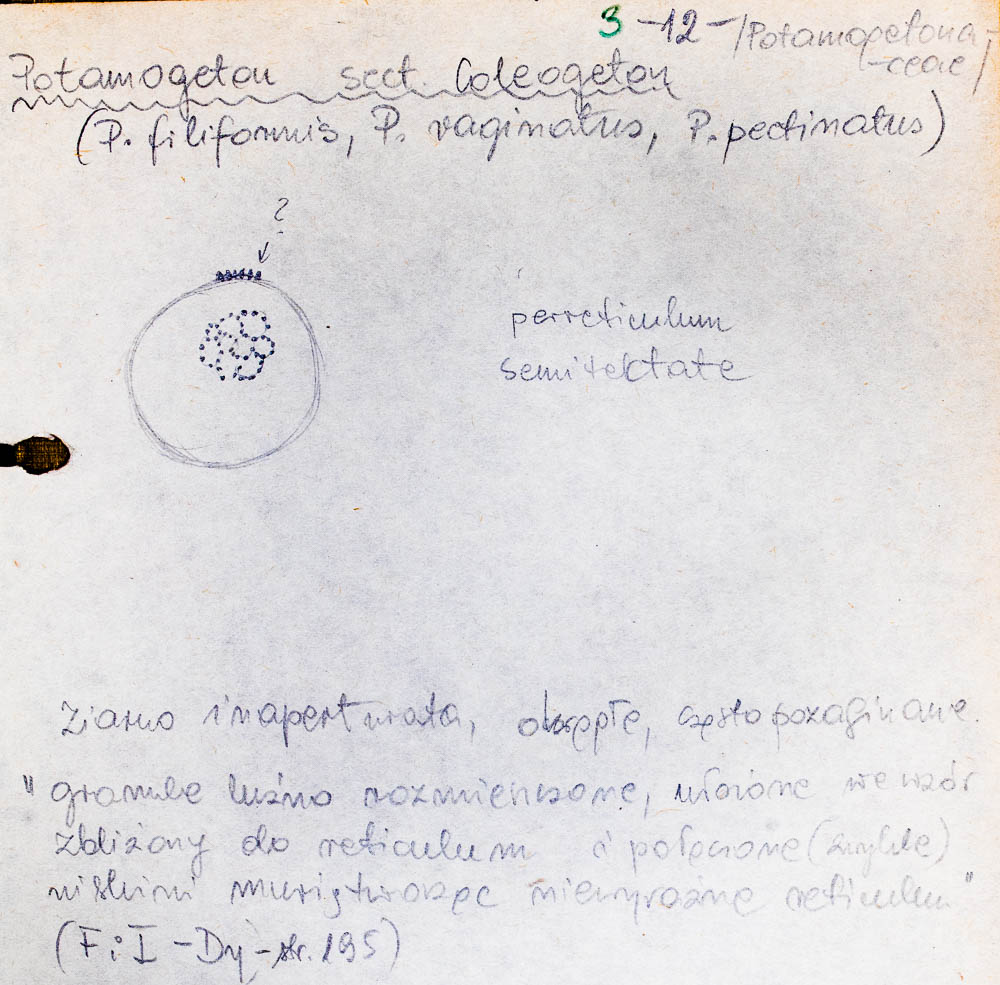 3 -12- /Potamogetona-
-ceae/
Potamogeton sect. Coleogeton
(P. filiformis, P. vaginatus, P. pectinatus)
?
perreticulum
semitektate
Ziarno inaperturata, okrągłe, często pozaginane.
"granule luźno rozmieszczone, ułożone we wzór
zbliżony do reticulum i połączone (zwykle)
niskimi muri, tworząc niewyraźne reticulum"
(F i I - Dy - str. 195)